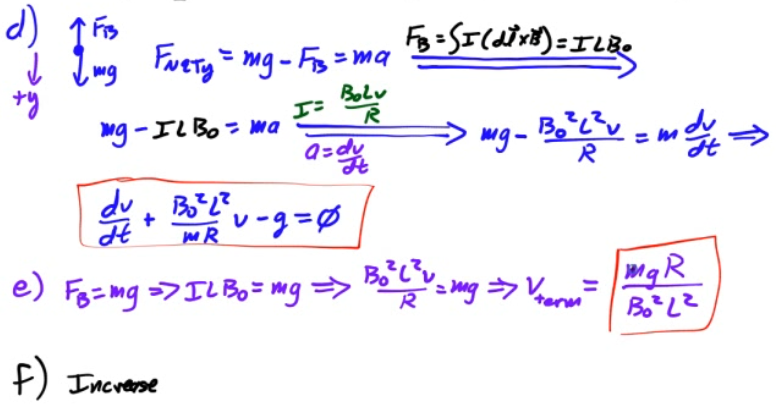 d) F_B F_NETy = mg - F_B = ma F_B = ∫I(dl⃗×B⃗) = ILB₀
mg
+y mg - ILB₀ = ma I = B₀Lv/R a = dv/dt mg - B₀²L²v/R = m dv/dt ⟹
dv/dt + B₀²L²/mR v - g = ∅
e) F_B = mg ⟹ ILB₀ = mg ⟹ B₀²L²v/R = mg ⟹ V_term = mgR/B₀²L²
f) Increase